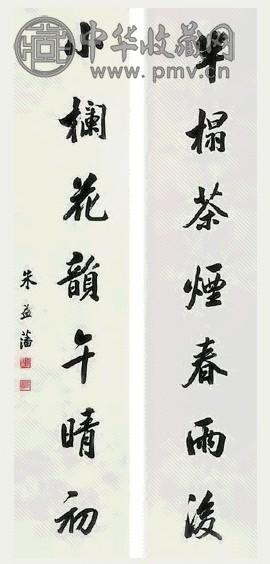 中华收藏网
www.pmv.cn
半榻茶煙春雨後
小欄花韻午晴初
朱益藩